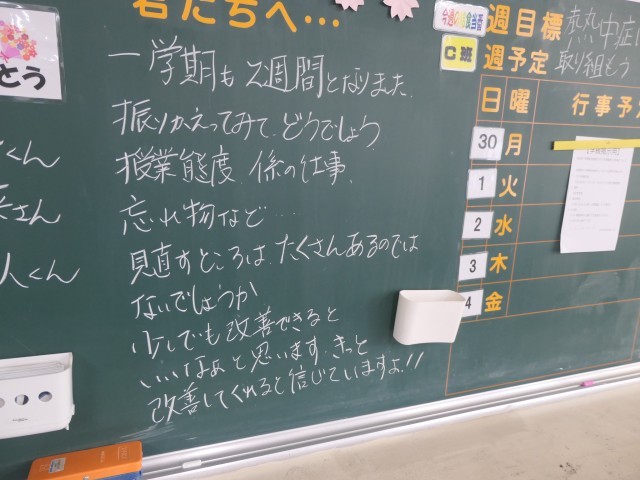 君たちへ…
一学期も2週間となりました。
振りかえってみて、どうでしょう
授業態度、係の仕事、
忘れ物など…
見直すところは、たくさんあるのでは
ないでしょうか
少しでも改善できると
いいなぁと思います。きっと
改善してくれると信じていますよ!!
とう
くん
さん
人くん
C班
週目標
熱中症に
週予定
取り組もう
日曜
行事予
30月
1火
2水
3木
4金